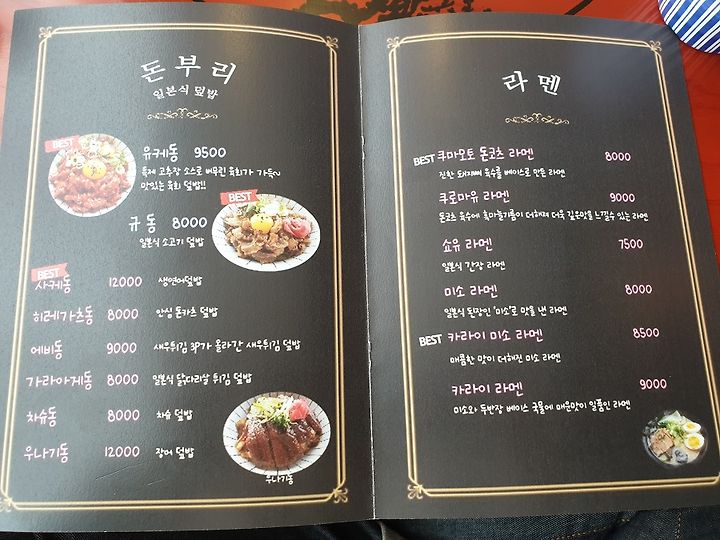 돈부리
일본식 덮밥
BEST
유케동 9500
특제 고추장 소스로 버무린 육회가 가득~
맛있는 육회 덮밥!!
BEST
규동 8000
일본식 소고기 덮밥
BEST
사케동 12000 생연어덮밥
히레가츠동 8000 안심 돈카츠 덮밥
에비동 9000 새우튀김 3P가 올라간 새우튀김 덮밥
가라아게동 8000 일본식 닭다리살 튀김 덮밥
차슈동 8000 차슈 덮밥
우나기동 12000 장어 덮밥
우나기동
라멘
BEST 쿠마모토 돈코츠 라멘 8000
진한 돼지뼈 육수를 베이스로 만든 라멘
쿠로마유 라멘 9000
돈코츠 육수에 흑마늘기름이 더해져 더욱 깊은맛을 느낄수 있는 라멘
쇼유 라멘 7500
일본식 간장 라멘
미소 라멘 8000
일본식 된장인 '미소'로 맛을 낸 라멘
BEST 카라이 미소 라멘 8500
매콤한 맛이 더해진 미소 라멘
카라이 라멘 9000
미소와 두반장 베이스 국물에 매운맛이 일품인 라멘